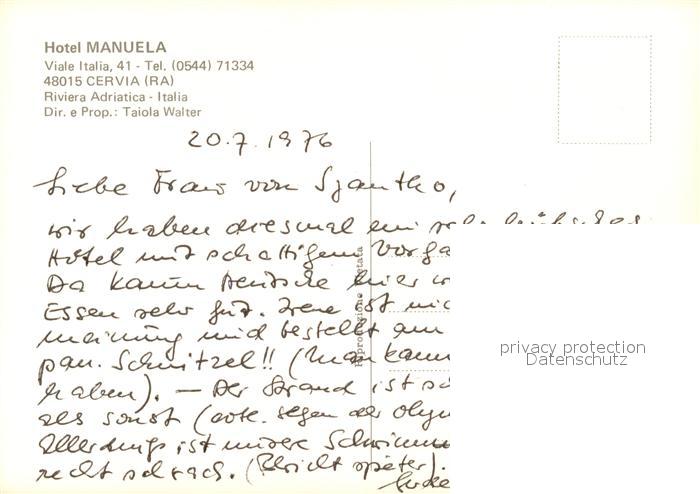 Hotel MANUELA
Viale Italia, 41 - Tel. (0544) 71334
48015 CERVIA (RA)
Riviera Adriatica - Italia
Dir. e Prop.: Taiola Walter
20.7.1976
Liebe Frau von Szantho,
wir haben diesmal ein sehr hübsches
Hotel mit schattigem Vorga
Da kaum Deutsche hier
Essen sehr gut. Irene ist nic
meinung und bestellt am
pan. Schnitzel!! (Man kann
haben). - Der Strand ist
als sonst (wohl. segen der olym
Allerdings ist unsere Schwimm
recht schwach. (Bericht später).
Riproduzione vietata
privacy protection
Datenschutz